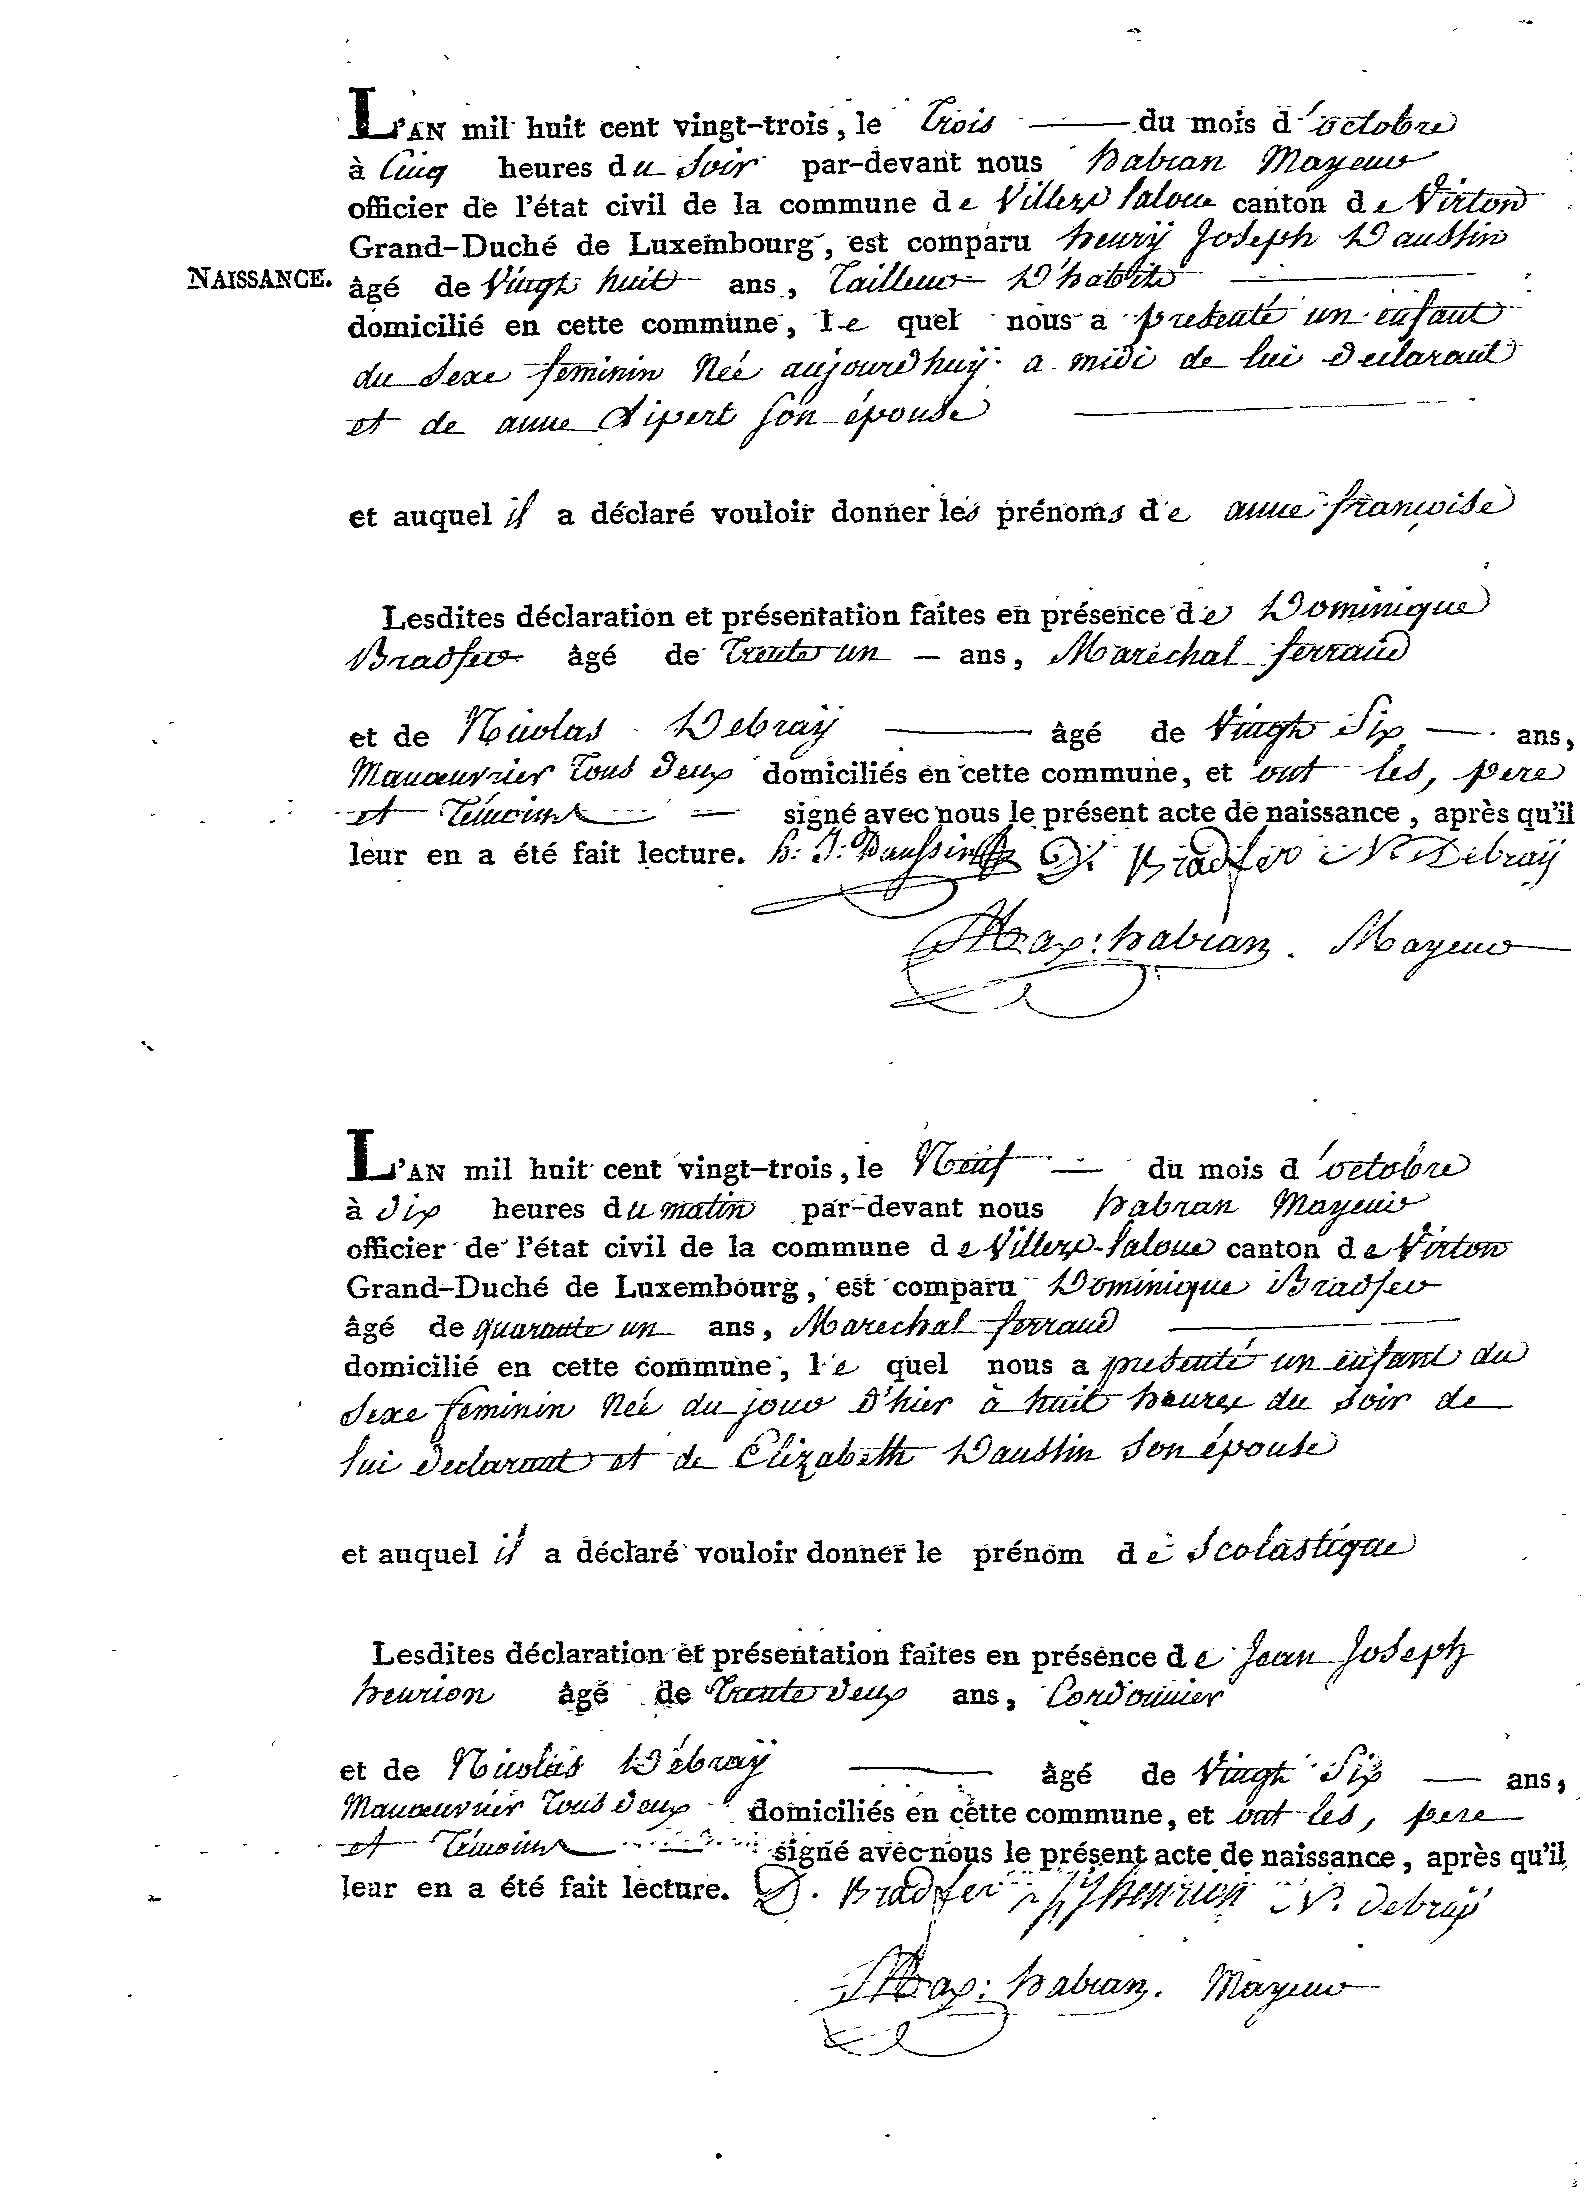 L'AN mil huit cent vingt-trois, le Trois du mois d'octobre
à Cinq heures du Soir par-devant nous habran Mayeur
officier de l'état civil de la commune de Villers sur canton de Virton
Grand-Duché de Luxembourg, est comparu henrÿ Joseph Daussin
NAISSANCE.
âgé de Vingt huit ans, Tailleur D'habits
domicilié en cette commune, le quel nous a presenté un enfant
du Sexe feminin Née aujourdhuÿ a midi de lui Declarant
et de anne Dipert Son épouse
et auquel il a déclaré vouloir donner les prénoms de anne françoise
Lesdites déclaration et présentation faites en présence de Dominique
Bradfer âgé de Trente un ans, Marechal ferrand
et de Nicolas Debraÿ âgé de Vingt Six ans,
Manœuvrier Tous Deux domiciliés en cette commune, et ont les, pere
et Témoins signé avec nous le présent acte de naissance, après qu'il
leur en a été fait lecture. h: J: Daussin D. Bradfer N. Debraÿ
Max: habran. Mayeur
L'AN mil huit cent vingt-trois, le Neuf du mois d'octobre
à Dix heures du matin par-devant nous habran Mayeur
officier de l'état civil de la commune de Villers canton de Virton
Grand-Duché de Luxembourg, est comparu Dominique Bradfer
âgé de quarante un ans, Marechal ferrand
domicilié en cette commune, le quel nous a presenté un enfant du
Sexe feminin Née du jour D'hier à huit heures du Soir de
lui Declarant et de Elizabeth Daussin Son épouse
et auquel il a déclaré vouloir donner le prénom de Scolastique
Lesdites déclaration et présentation faites en présence de Jean Joseph
henrion âgé de Trente deux ans, Cordonnier
et de Nicolas Débraÿ âgé de Vingt Six ans,
Manœuvrier Tous Deux domiciliés en cette commune, et ont les, pere
et Témoins signé avec nous le présent acte de naissance, après qu'il
leur en a été fait lecture. D. Bradfer JJhenrion N. debraÿ
Max: habran. Mayeur